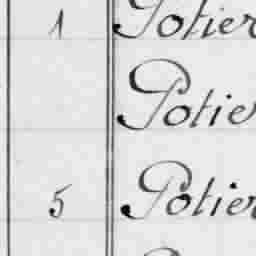 1 Potier
Potie
5 Potier